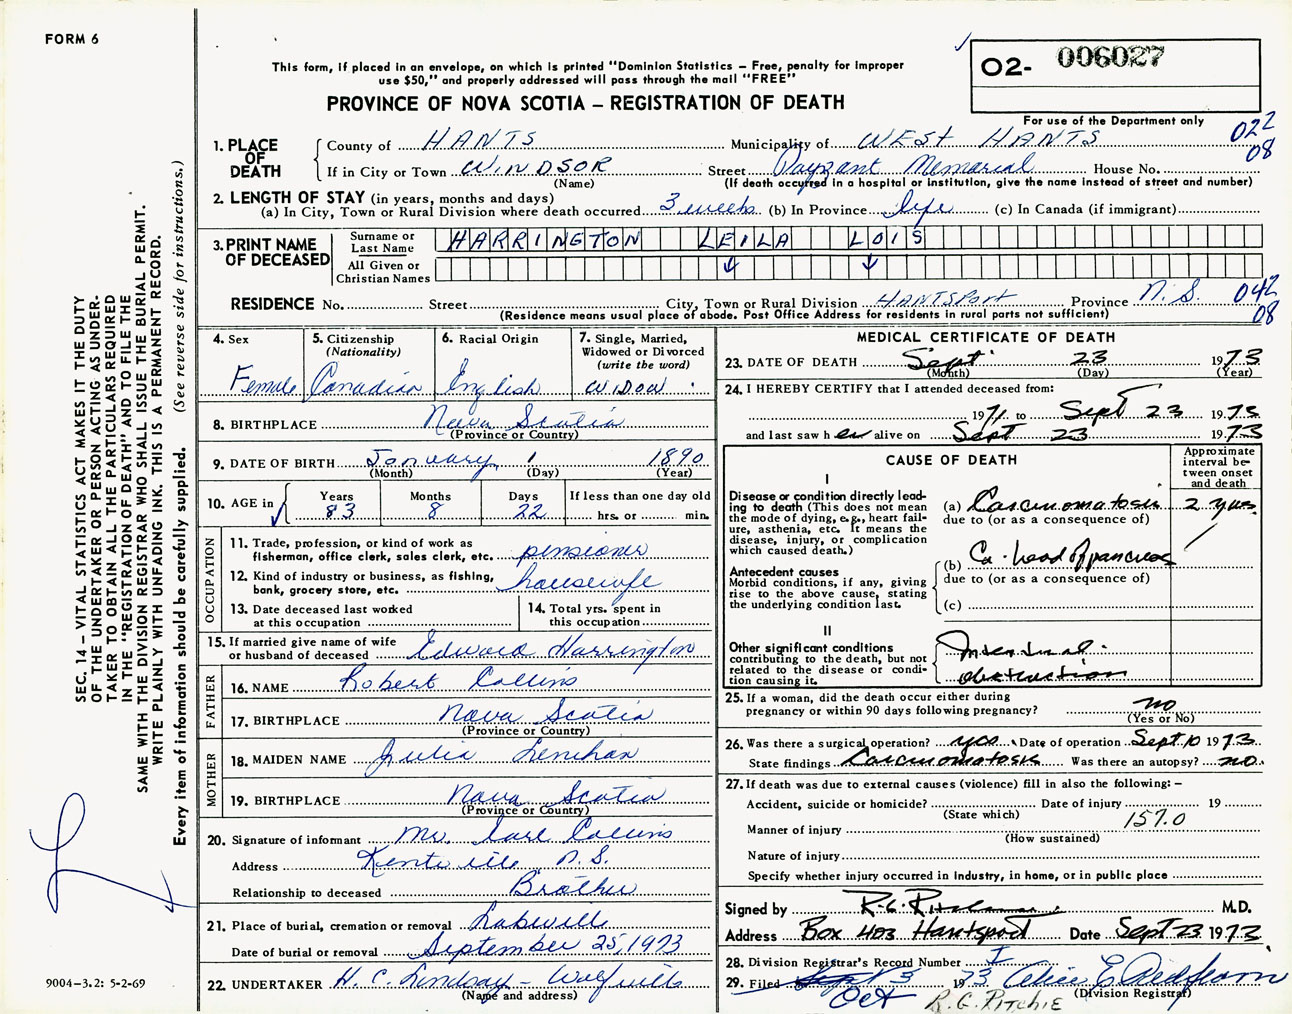 FORM 6
This form, if placed in an envelope, on which is printed "Dominion Statistics – Free, penalty for improper
use $50," and properly addressed will pass through the mail "FREE"
PROVINCE OF NOVA SCOTIA – REGISTRATION OF DEATH
O2- 006027
For use of the Department only
022
08
1. PLACE OF DEATH
County of HANTS Municipality of WEST HANTS
If in City or Town WINDSOR Street Payzant Memorial House No.
(Name) (If death occurred in a hospital or institution, give the name instead of street and number)
2. LENGTH OF STAY (in years, months and days)
(a) In City, Town or Rural Division where death occurred 3 weeks (b) In Province life (c) In Canada (if immigrant)
3. PRINT NAME OF DECEASED
Surname or Last Name HARRINGTON LEILA LOIS
All Given or Christian Names
RESIDENCE No. Street City, Town or Rural Division HANTSPORT Province N.S.
(Residence means usual place of abode. Post Office Address for residents in rural parts not sufficient)
042
08
4. Sex Female
5. Citizenship (Nationality) Canadian
6. Racial Origin English
7. Single, Married, Widowed or Divorced (write the word) WIDOW
8. BIRTHPLACE Nova Scotia
(Province or Country)
9. DATE OF BIRTH January 1 1890
(Month) (Day) (Year)
10. AGE in Years 83 Months 8 Days 22 If less than one day old hrs. or min.
OCCUPATION
11. Trade, profession, or kind of work as fisherman, office clerk, sales clerk, etc. pensioner
12. Kind of industry or business, as fishing, bank, grocery store, etc. housewife
13. Date deceased last worked at this occupation
14. Total yrs. spent in this occupation
15. If married give name of wife or husband of deceased Edward Harrington
FATHER
16. NAME Robert Collins
17. BIRTHPLACE Nova Scotia
(Province or Country)
MOTHER
18. MAIDEN NAME Julia Lenihan
19. BIRTHPLACE Nova Scotia
(Province or Country)
20. Signature of informant Mr. Earl Collins
Address Kentville N.S.
Relationship to deceased Brother
21. Place of burial, cremation or removal
Date of burial or removal September 25, 1973
22. UNDERTAKER H. C. Lindsay – Wolfville
(Name and address)
MEDICAL CERTIFICATE OF DEATH
23. DATE OF DEATH Sept 23 1973
(Month) (Day) (Year)
24. I HEREBY CERTIFY that I attended deceased from:
1971 to Sept 23 1973
and last saw her alive on Sept 23 1973
CAUSE OF DEATH
Approximate interval between onset and death
I
Disease or condition directly leading to death (This does not mean the mode of dying, e.g., heart failure, asthenia, etc. It means the disease, injury, or complication which caused death.)
(a) Carcinomatosis 2 yrs.
due to (or as a consequence of)
Antecedent causes
Morbid conditions, if any, giving rise to the above cause, stating the underlying condition last.
(b) Ca. head of pancreas
due to (or as a consequence of)
(c)
II
Other significant conditions
contributing to the death, but not related to the disease or condition causing it.
Intestinal obstruction
25. If a woman, did the death occur either during pregnancy or within 90 days following pregnancy? no
(Yes or No)
26. Was there a surgical operation? yes Date of operation Sept 10 1973
State findings Carcinomatosis Was there an autopsy? no
27. If death was due to external causes (violence) fill in also the following:–
Accident, suicide or homicide? Date of injury 19
(State which)
157.0
Manner of injury
(How sustained)
Nature of injury
Specify whether injury occurred in industry, in home, or in public place
Signed by M.D.
Address Box 403 Hantsport Date Sept 23 1973
28. Division Registrar's Record Number I
29. Filed Oct 3 1973
(Division Registrar)
R. G. RITCHIE
SEC. 14 – VITAL STATISTICS ACT MAKES IT THE DUTY
OF THE UNDERTAKER OR PERSON ACTING AS UNDER-
TAKER TO OBTAIN ALL THE PARTICULARS REQUIRED
IN THE "REGISTRATION OF DEATH" AND TO FILE THE
SAME WITH THE DIVISION REGISTRAR WHO SHALL ISSUE THE BURIAL PERMIT.
WRITE PLAINLY WITH UNFADING INK. THIS IS A PERMANENT RECORD.
Every item of information should be carefully supplied. (See reverse side for instructions.)
9004-3.2: 5-2-69